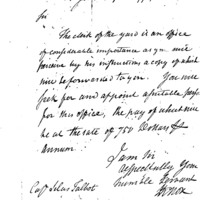 Sir
The clerk of the yard is an office
of considerable importance as you will
perceive by his instruction a copy of which
will be forwarded to you. You will
seek for and appoint a suitable person
for this office, the pay of which will
be at the rate of 750 Dollars per
annum.
I am Sir
respectfully your
humble servant
Capt Silas Talbot